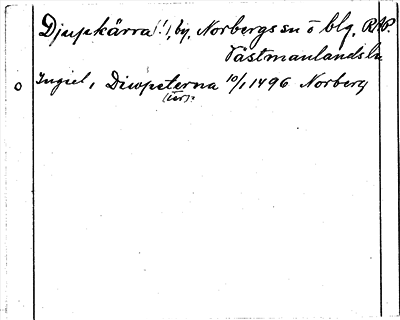 Djupkärra (!), by, Norbergs sn o blg. RAP.
Västmanlands län
o Ingiel, Diwpeterna 10/1 1496 Norberg
(ur).